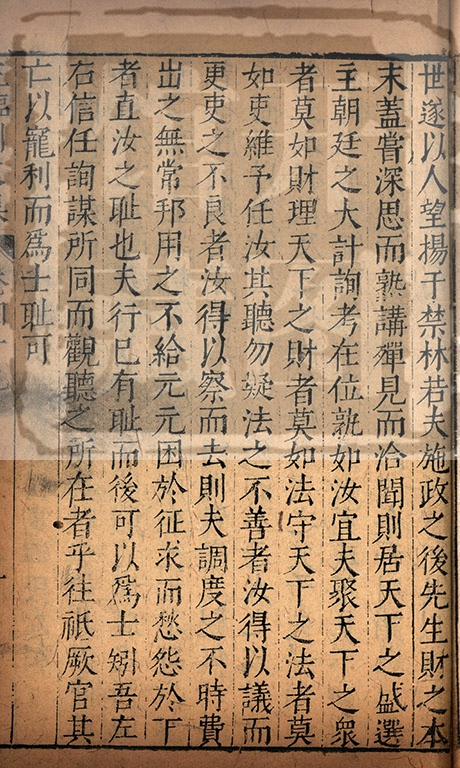 世遂以人望揚于禁林若夫施政之後先生財之本
末蓋嘗深思而熟講殫見而洽聞則居天下之盛選
主朝廷之大計詢考在位孰如汝宜夫聚天下之衆
者莫如財理天下之財者莫如法守天下之法者莫
如吏維予任汝其聽勿疑法之不善者汝得以議而
更吏之不良者汝得以察而去則夫調度之不時費
出之無常邦用之不給元元困於征求而愁怨於下
者直汝之耻也夫行已有耻而後可以爲士矧吾左
右信任詢謀所同而觀聽之所在者乎往祇厥官其
亡以寵利而爲士耻可